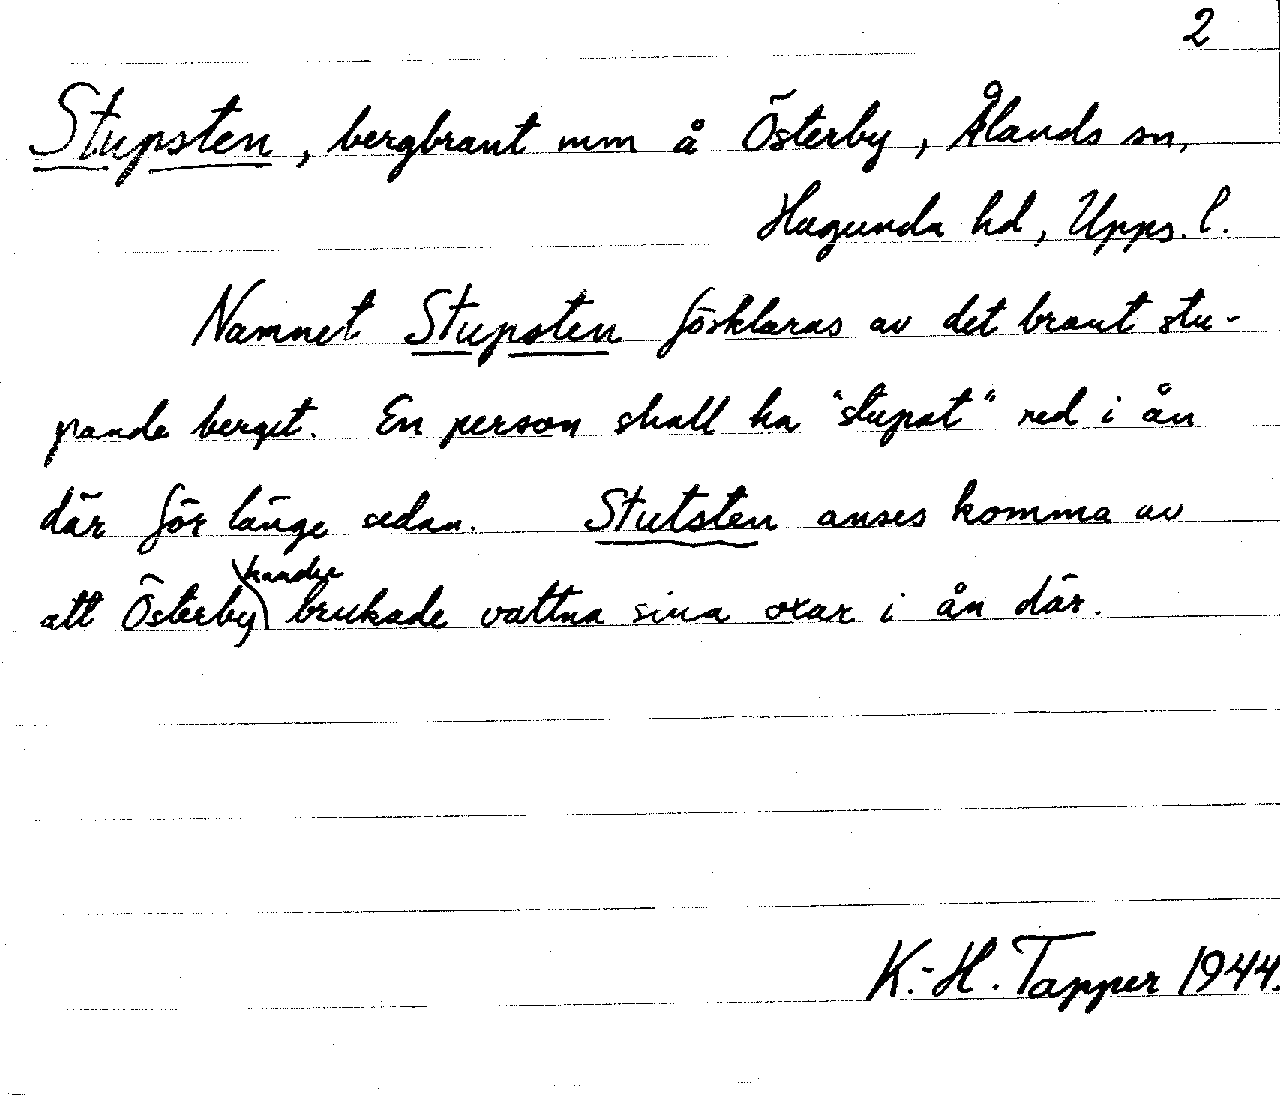 2
Stupsten, bergbrant mm å Österby, Ålands sn,
Hagunda hd, Upps. l.
Namnet Stupsten förklaras av det brant stu-
pande berget. En person skall ha "stupat" ned i ån
där för länge sedan. Stutsten anses komma av
att Österby brukade vattna sina oxar i ån där.
K.-H. Tapper 1944.